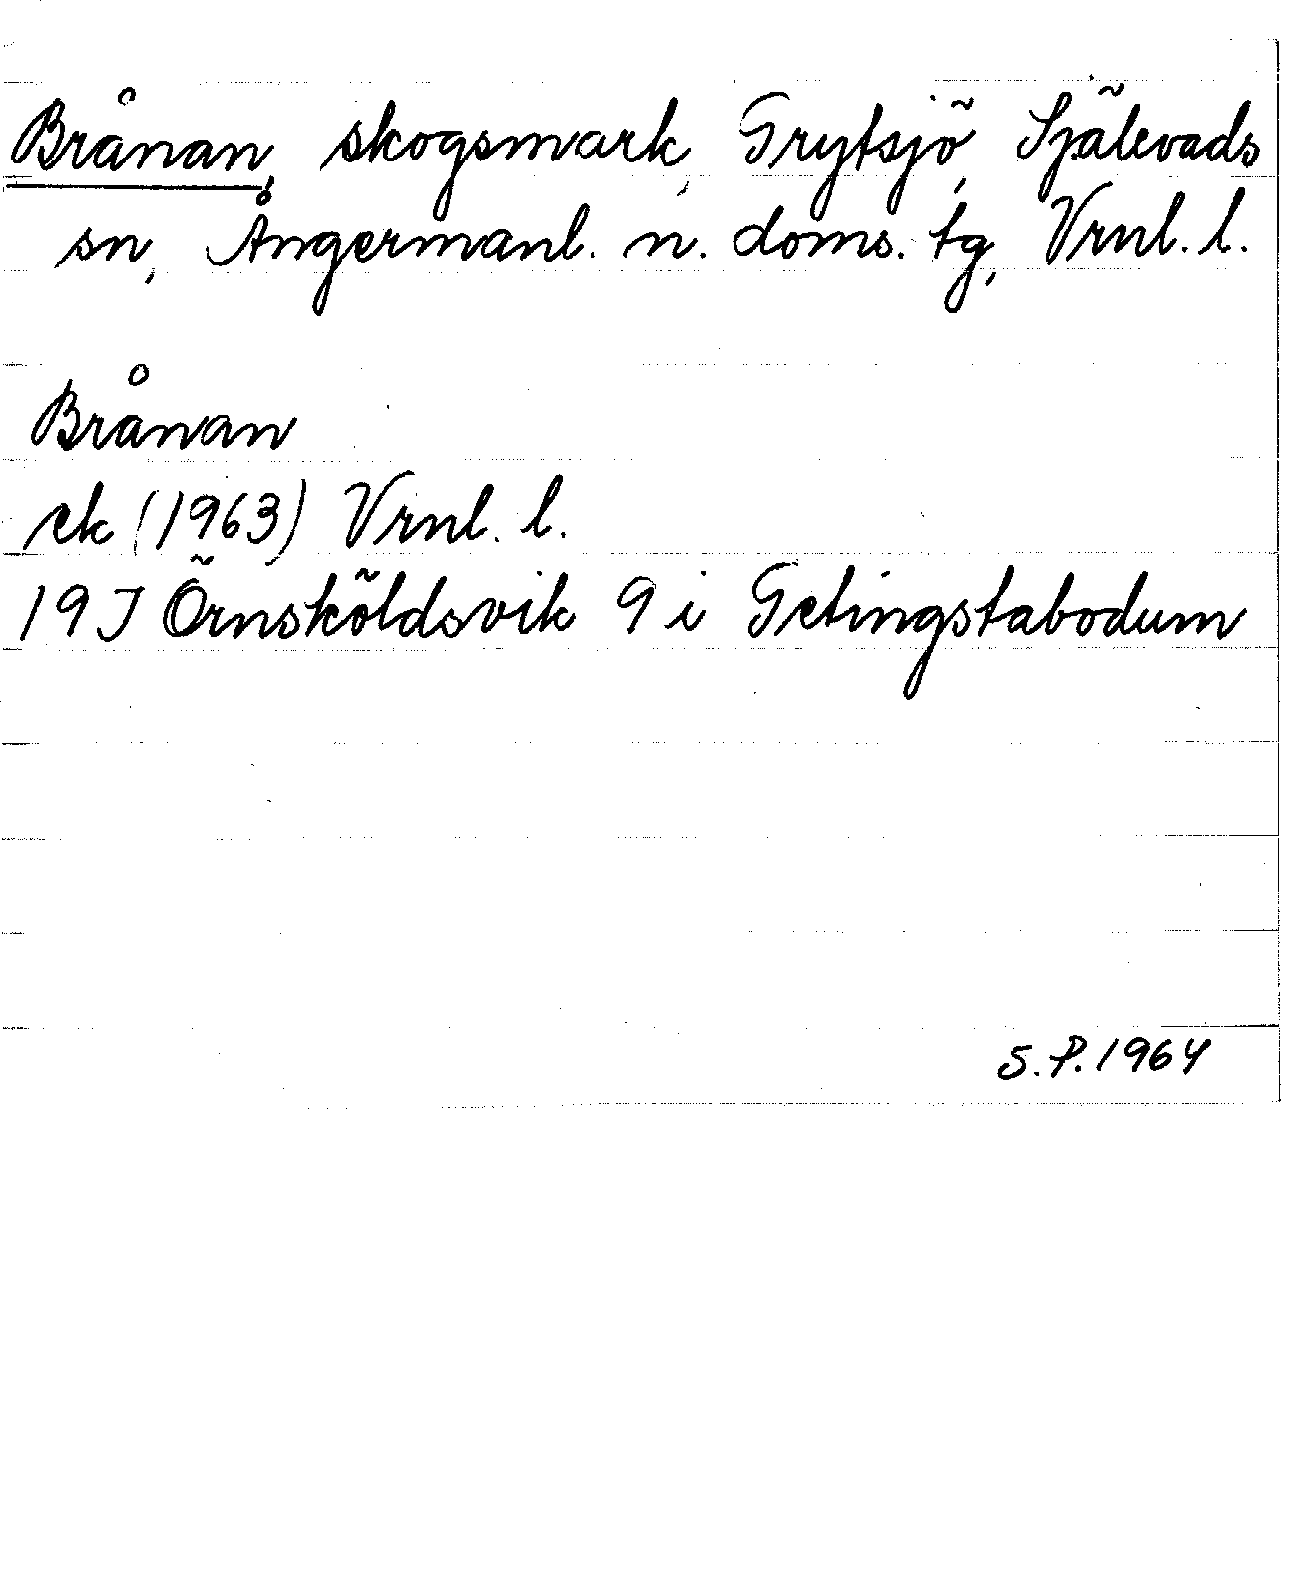 Brånan, skogsmark, Grytsjö, Själevads
sn, Ångermanl. n. doms. tg, Vrnl. l.
Brånan
ek (1963) Vrnl. l.
19 J Örnsköldsvik 9 i Getingstabodum
S.P. 1964